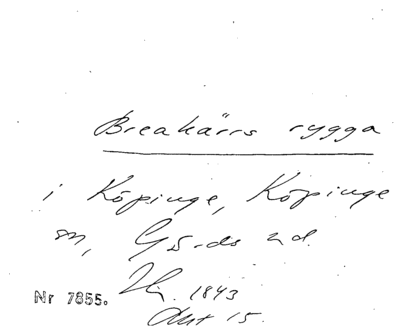 Breakärrs rygga
i Köpinge, Köpinge
sn, Gärds hd.
Nr 7855.
1843
Akt 15.